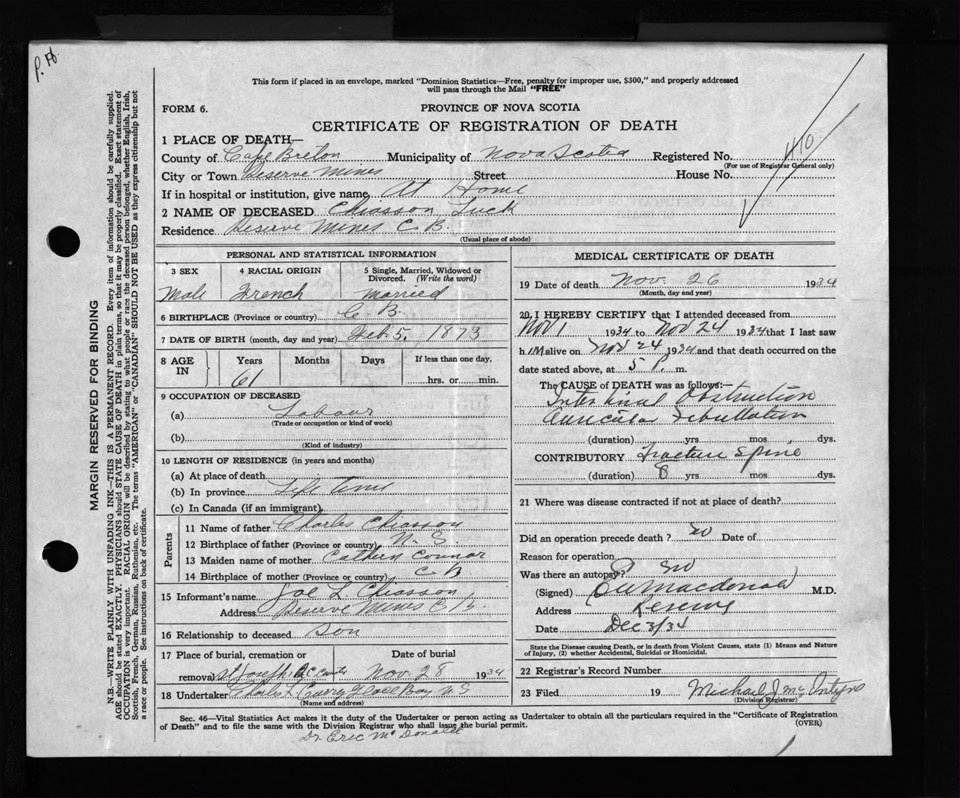 P.H.
This form if placed in an envelope, marked "Dominion Statistics—Free, penalty for improper use, $300," and properly addressed
will pass through the Mail "FREE"
FORM 6.
PROVINCE OF NOVA SCOTIA
CERTIFICATE OF REGISTRATION OF DEATH
1 PLACE OF DEATH—
County of Cape Breton Municipality of Nova Scotia Registered No. 410
(For use of Registrar General only)
City or Town Reserve Mines Street House No.
If in hospital or institution, give name At Home
2 NAME OF DECEASED Chiasson Luck
Residence Reserve Mines C.B.
(Usual place of abode)
PERSONAL AND STATISTICAL INFORMATION
3 SEX 4 RACIAL ORIGIN 5 Single, Married, Widowed or Divorced. (Write the word)
Male French Married
6 BIRTHPLACE (Province or country) C.B.
7 DATE OF BIRTH (month, day and year) Feb. 5, 1873
8 AGE IN Years Months Days If less than one day,
61 hrs. or min.
9 OCCUPATION OF DECEASED
(a) Labour
(Trade or occupation or kind of work)
(b)
(Kind of industry)
10 LENGTH OF RESIDENCE (in years and months)
(a) At place of death
(b) In province Life time
(c) In Canada (if an immigrant)
Parents
11 Name of father Charles Chiasson
12 Birthplace of father (Province or country) N.S
13 Maiden name of mother Cathern Connor
14 Birthplace of mother (Province or country) C B
15 Informant's name Joe L Chiasson
Address Reserve Mines C.B.
16 Relationship to deceased Son
17 Place of burial, cremation or
removal St Joseph Nov. 28 1934
18 Undertaker Glace Bay N S
(Name and address)
MEDICAL CERTIFICATE OF DEATH
19 Date of death Nov. 26 1934
(Month, day and year)
20 I HEREBY CERTIFY that I attended deceased from
Nov 1 1934 to Nov 24 1934 that I last saw
h IM alive on Nov 24 1934 and that death occurred on the
date stated above, at 5 P. m.
The CAUSE of DEATH was as follows:—
Intestinal Obstruction
Auricular Fibrillation
(duration) yrs. mos. dys.
CONTRIBUTORY Fracture Spine
(duration) 8 yrs. mos. dys.
21 Where was disease contracted if not at place of death?
Did an operation precede death? No Date of
Reason for operation
Was there an autopsy? No
(Signed) Macdonald M.D.
Address Reserve
Date Dec 3/34
State the Disease causing Death, or in death from Violent Causes, state (1) Means and
Nature of Injury, (2) whether Accidental, Suicidal or Homicidal.
22 Registrar's Record Number
23 Filed 19 Michael J McIntyre
(Division Registrar)
Sec. 46—Vital Statistics Act makes it the duty of the Undertaker or person acting as Undertaker to obtain all the particulars required in the "Certificate of Registration
of Death" and to file the same with the Division Registrar who shall issue the burial permit.
(OVER)
Dr. Eric McDonald
MARGIN RESERVED FOR BINDING
N.B.—WRITE PLAINLY WITH UNFADING INK—THIS IS A PERMANENT RECORD. Every item of information should be carefully supplied.
AGE should be stated EXACTLY. PHYSICIANS should STATE CAUSE OF DEATH in plain terms, so that it may be properly classified. Exact statement of
OCCUPATION is very important. RACIAL ORIGIN will be described by stating to what people or race the deceased person belonged, whether English, Irish,
Scottish, French, German, Russian, Ruthenian, etc. The terms "AMERICAN" or "CANADIAN" SHOULD NOT BE USED as they express citizenship but not
a race or people. See instructions on back of certificate.